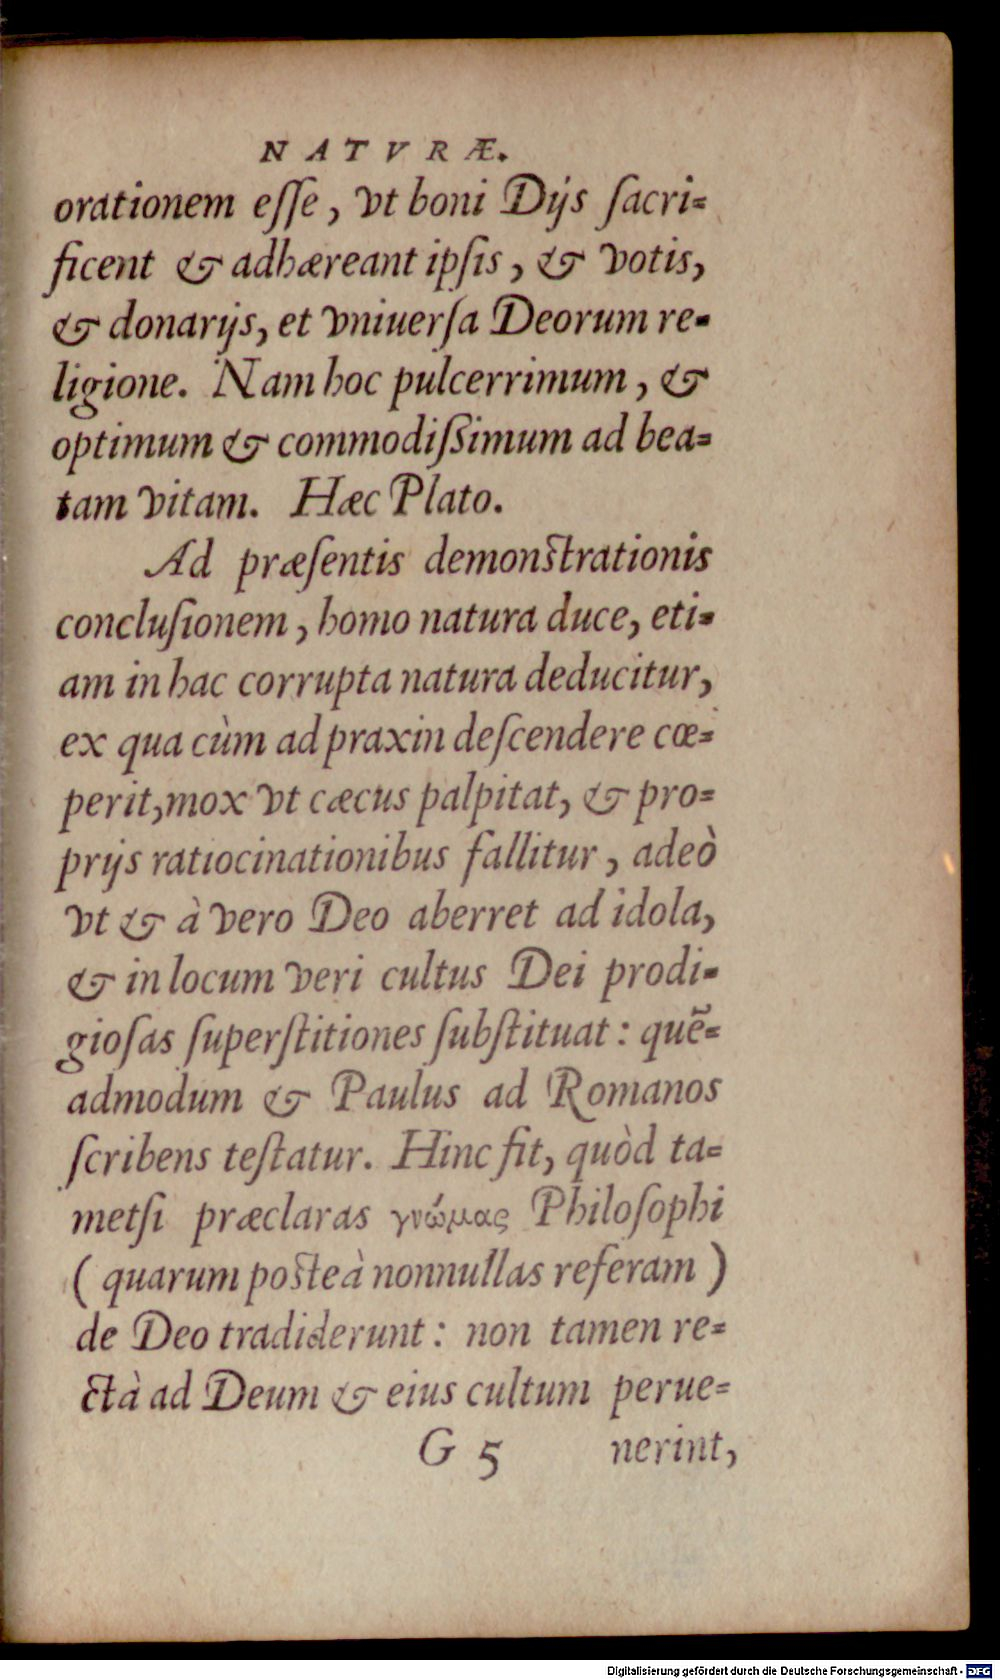 NATVRÆ.
orationem eſſe, vt boni Dijs ſacri-
ficent & adhæreant ipſis, & votis,
& donarijs, et vniuerſa Deorum re-
ligione. Nam hoc pulcerrimum, &
optimum & commodiſsimum ad bea-
tam vitam. Hæc Plato.
Ad præſentis demonſtrationis
concluſionem, homo natura duce, eti-
am in hac corrupta natura deducitur,
ex qua cùm ad praxin deſcendere cœ-
perit, mox vt cæcus palpitat, & pro-
prijs ratiocinationibus fallitur, adeò
vt & à vero Deo aberret ad idola,
& in locum veri cultus Dei prodi-
gioſas ſuperſtitiones ſubſtituat: quẽ-
admodum & Paulus ad Romanos
ſcribens teſtatur. Hinc fit, quòd ta-
metſi præclaras γνώμας Philoſophi
( quarum poſteà nonnullas referam )
de Deo tradiderunt: non tamen re-
ctà ad Deum & eius cultum perue-
G 5 nerint,
Digitalisierung gefördert durch die Deutsche Forschungsgemeinschaft - DFG